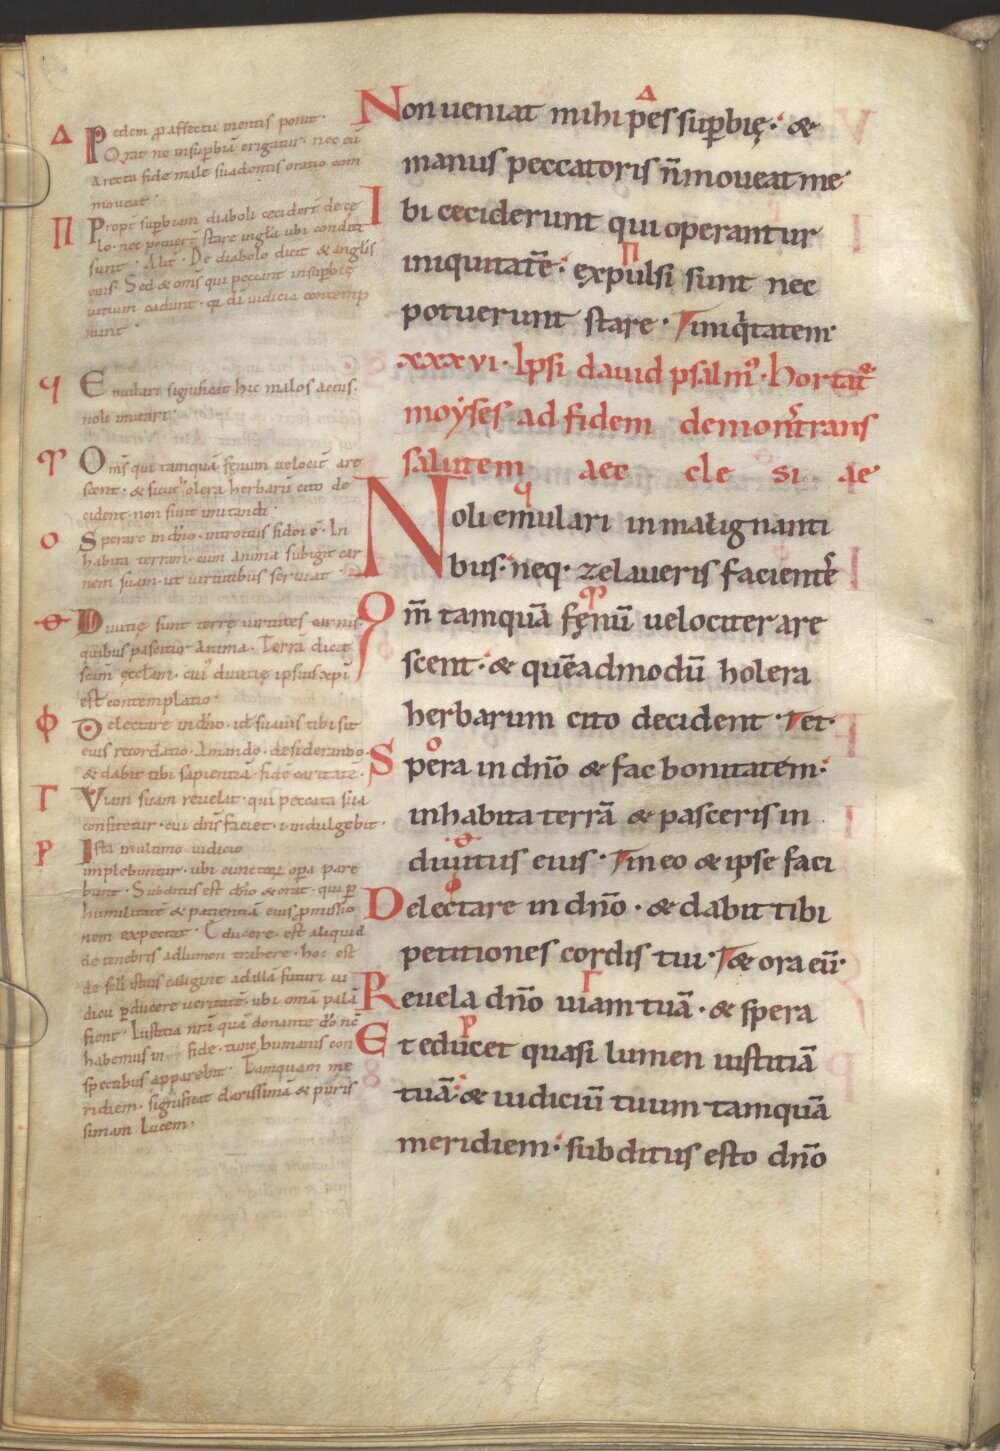 Δ Pedem p affectu mentis ponit.
Orat ne insupbiā erigatur. nec eū
a recta fide male suadentis oratio com
moveat.
Π Propt supbiam diaboli ceciderт de cę
lo. nec potuerт stare in gła ubi conditi
sunt. Alit. De diabolo dicit & anglis
eius. Sed & oms qui peccant in supbię
vitium cadunt. q̄ di iudicia contemp
nunt.
Emulari significat hic malos actus.
noli imitari.
Oms qui tamquā fęnum velocit are
scent. & sicut olera herbarū cito de
cident. non sunt imitandi.
O Sperare in dño. introitus fidei ē. In
habita terram. cum anima subigit car
nem suam. ut virtutibus serviat.
Θ Divitię sunt terrę virtutes carnis.
quibus pascitur anima. Terrā dicit
scām ęcclam. cui divitię ipsius xpi
est contemplatio.
Φ Delectare in dño. id suavis tibi sit
eius recorditio. Amando. desiderando.
& dabit tibi sapientiā. fidē caritatē.
Γ Viam suam revelit. qui peccata sua
confitetur. cui dñs faciet. i. indulgebit.
P Ista in ultimo iudicio
implebuntur. ubi cunctorꝝ opa pare
bunt. Subditus est dño & orat. qui p
humilitatē & patientiā eius pmissio
nem expectat. Educere. est aliquid
de tenebris ad lumen trahere. hoc est
de seculi istius caligine ad illā futuri iu
dicii pducere veritatē. ubi omā palā
fient. Iustitia nrā quā donante dō nc
habemus in fide. tunc humanis con
spectibus apparebit. Tamquam me
ridiem. significat clarissimā & puris
simam lucem.
Non veniat mihi pes supbię. &
manus peccatoris n̄ moveat me
Ibi ceciderunt qui operantur
iniquitatē. expulsi sunt nec
potuerunt stare. iniqtatem
xxxvi. Ipsi david psalm. Hortat
moyses ad fidem demonstrans
salutem aec cle si ae
Noli emulari in malignanti
bus. neq. zelaveris faciente
Qm̄ tamquā fęnū velociter are
scent. & quēadmodū holera
herbarum cito decident. et.
Spera in dño & fac bonitatem.
inhabita terrā & pasceris in
divitiis eius. in eo & ipse faci
Delectare in dño. & dabit tibi
petitiones cordis tui. & ora eū.
Revela dño viam tuā. & spera
Et educet quasi lumen iustitiā
tuā. & iudiciū tuum tamquā
meridiem. subditus esto dño